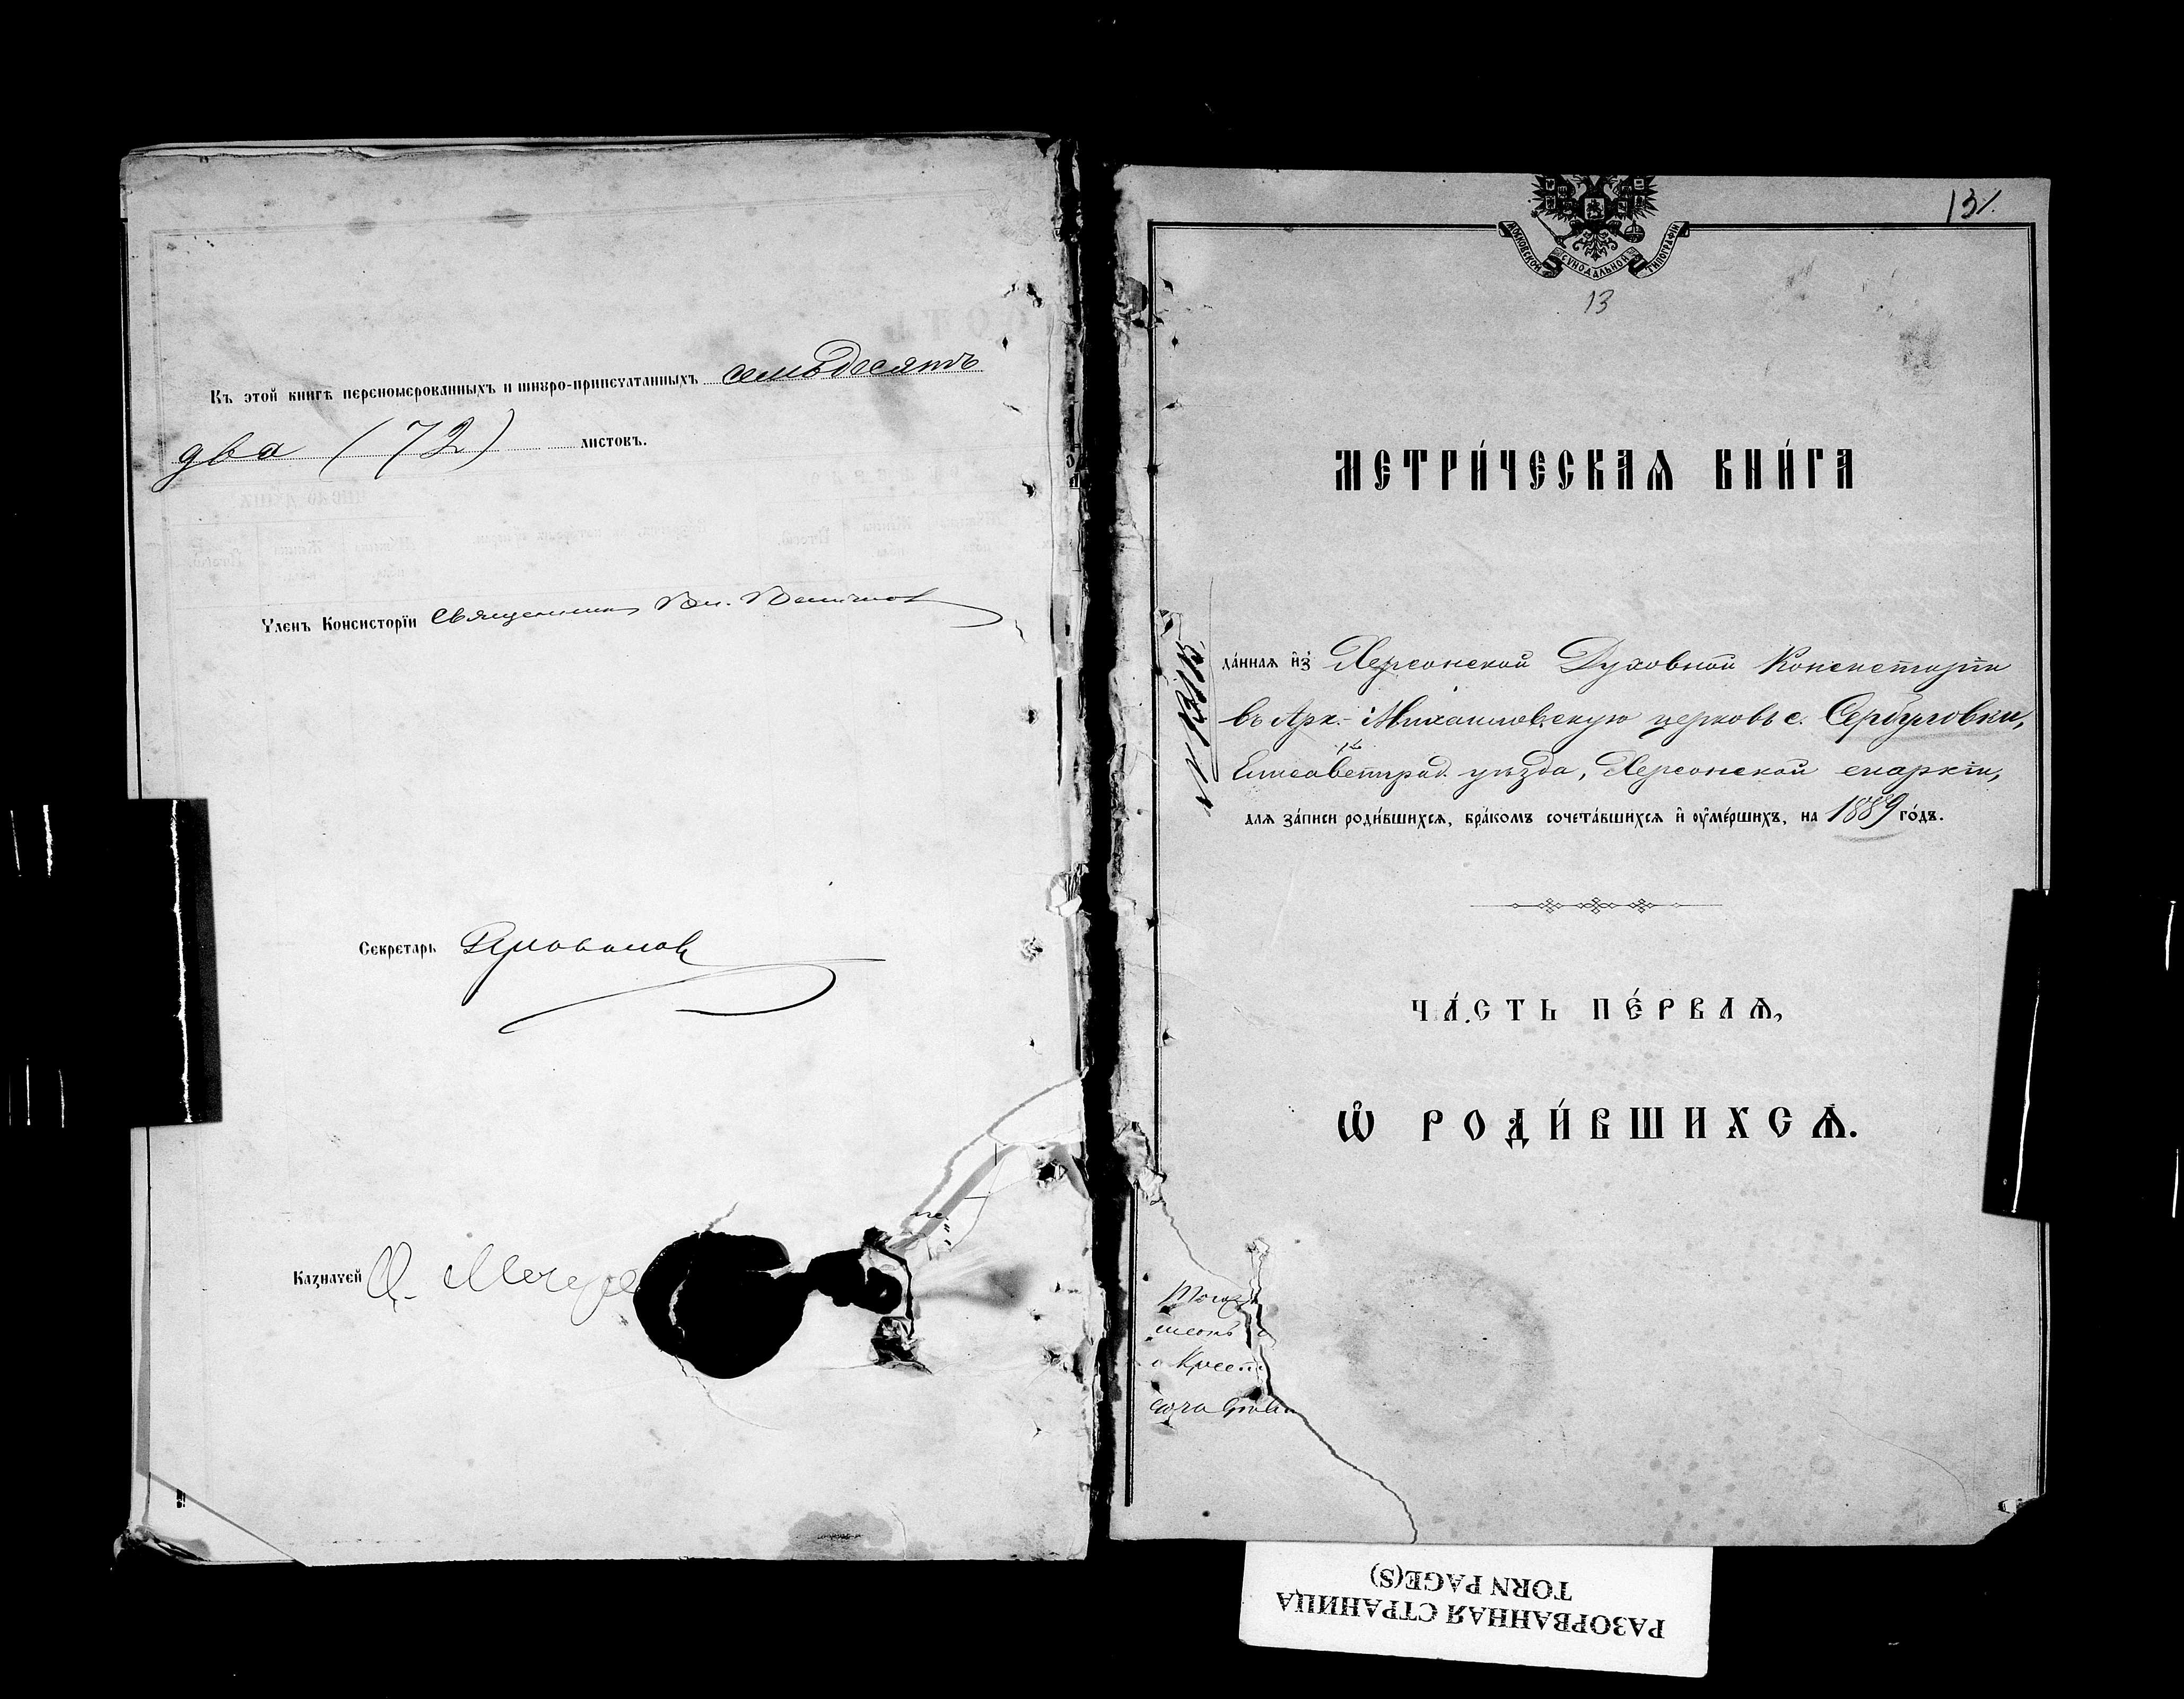 Къ этой книгѣ перенумерованныхъ и шнуро-припечатанныхъ семьдесятъ
два (72) листовъ.
Членъ Консисторіи Священникъ
Секретарь
Казначей
131.
МОСКОВСКОЙ СѴНОДАЛЬНОЙ ТИПОГРАФІИ
13
МЕТРИ́ЧЕСКАѦ КНИ́ГА
да́ннаѧ и҆з̾ Херсонской Духовной Консисторіи
въ Арх.-Михаиловскую церковь с. Сербуловки,
Елисаветград. уѣзда, Херсонской епархіи,
для за́писи роди́вшихсѧ, бра́комъ сочета́вшихсѧ и҆ ᲂу҆ме́ршихъ, на 1889 го́дъ.
ЧА́СТЬ ПЕ́РВАѦ,
Ѡ҆ РОДИ́ВШИХСѦ.
РАЗОРВАННАЯ СТРАНИЦА
TORN PAGE(S)